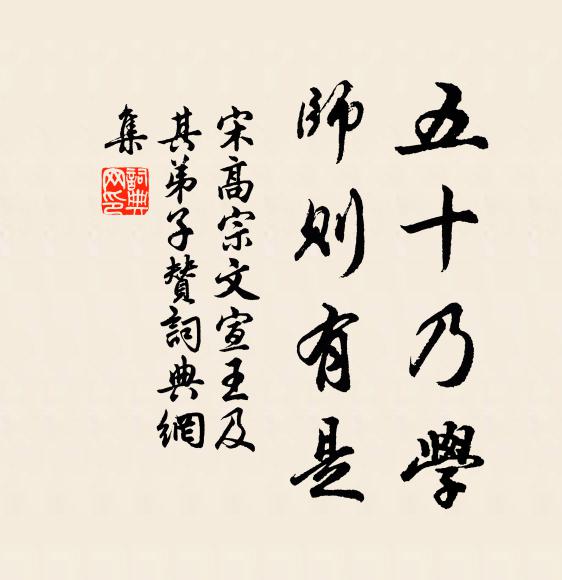 五十乃學
師則有是
宋高宗文宣王及
其弟子贊詞典網
集
詞典網印